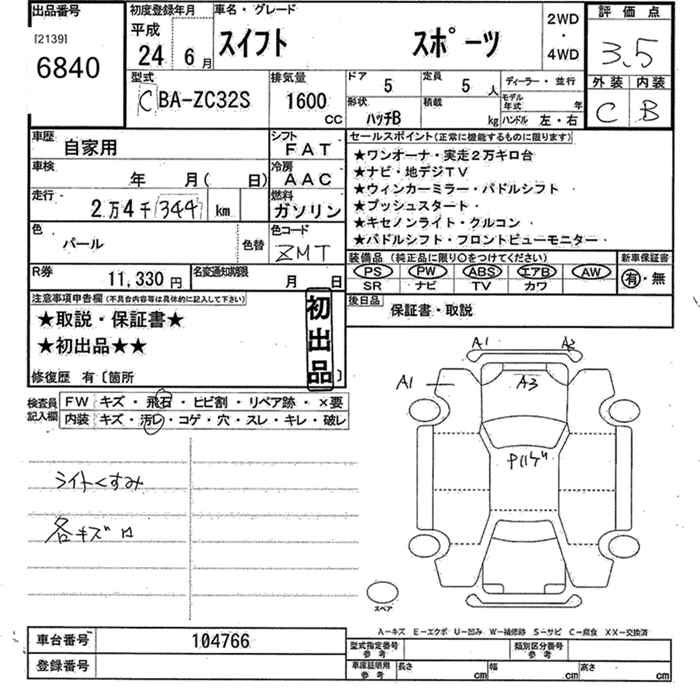 出品番号 初度登録年月 車名・グレード 2WD・4WD 評価点
[2139] 平成
6840 24 6月 スイフト スポーツ 3.5
型式 排気量 ドア 5 定員 5人 ディーラー・並行 外装 内装
C BA-ZC32S 1600CC 形状 ハッチB 積載 kg モデル年式 年 ハンドル 左・右 C B
車歴 自家用 シフト FAT セールスポイント(正常に機能するものに限ります)
車検 年 月( 日) 冷房 AAC ★ワンオーナ・実走2万キロ台
走行 2万4千344km 燃料 ガソリン ★ナビ・地デジTV
★ウィンカーミラー・パドルシフト
★プッシュスタート・
★キセノンライト・クルコン
★パドルシフト・フロントビューモニター
色 パール 色替 色コード ZMT
装備品(純正品に限り○をつけてください) 新車保証書
R券 11,330円 名変通知期限 月 日 PS PW ABS エアB AW 有・無
SR ナビ TV カワ
注意事項申告欄(不具合内容等は具体的に記入して下さい) 後日品 保証書・取説
★取説・保証書★
★初出品★★
初出品
修復歴 有〔箇所 〕
検査員記入欄 FW キズ・飛石・ヒビ割・リペア跡・×要
内装 キズ・汚レ・コゲ・穴・スレ・キレ・破レ
A1 A2
A1 A3
ライトくすみ
各キズ
スペア
A-キズ E-エクボ U-凹み W-補修跡 S-サビ C-腐食 XX-交換済
車台番号 104766 型式指定番号参考 類別区分番号参考
登録番号 車庫証明用参考 長さ cm 幅 cm 高さ cm